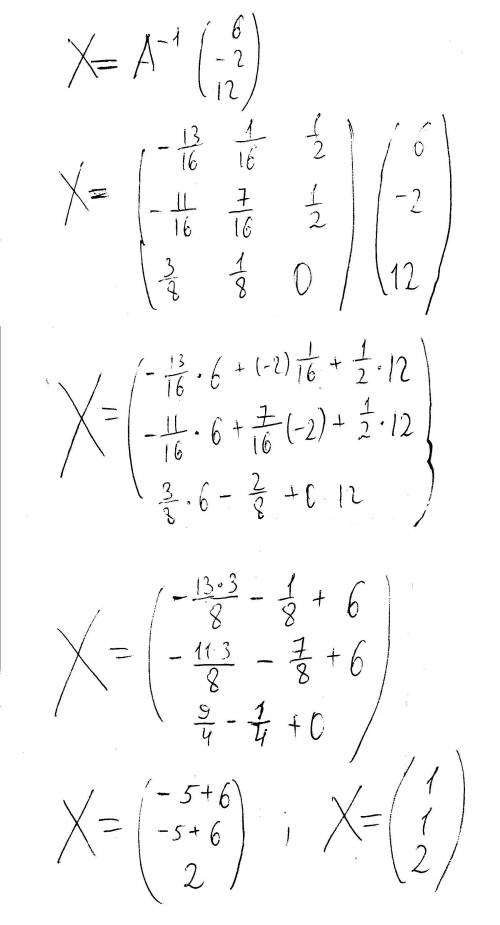 X = A⁻¹ ( 6 ; -2 ; 12 )
X = ( -13/16 1/16 1/2 ; -11/16 7/16 1/2 ; 3/8 1/8 0 ) ( 6 ; -2 ; 12 )
X = ( -13/16 · 6 + (-2) 1/16 + 1/2 · 12 ; -11/16 · 6 + 7/16 (-2) + 1/2 · 12 ; 3/8 · 6 - 2/8 + 0 · 12 )
X = ( -13·3/8 - 1/8 + 6 ; -11·3/8 - 7/8 + 6 ; 9/4 - 1/4 + 0 )
X = ( -5+6 ; -5+6 ; 2 ) ; X = ( 1 ; 1 ; 2 )